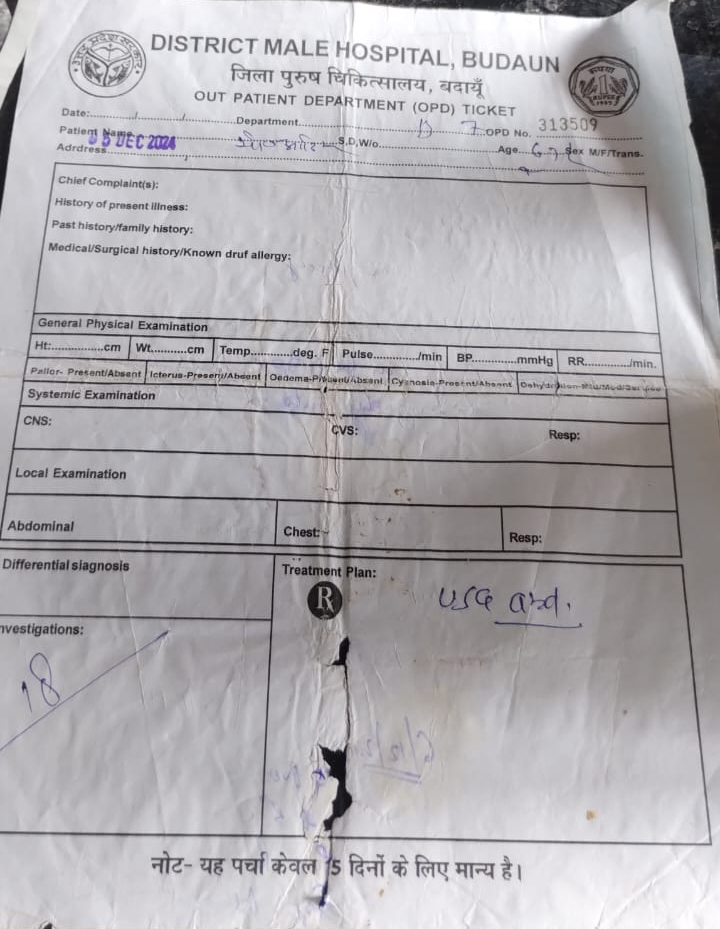 DISTRICT MALE HOSPITAL, BUDAUN
जिला पुरुष चिकित्सालय, बदायूँ
OUT PATIENT DEPARTMENT (OPD) TICKET
Date:............/............/............ Department............ OPD No. 313509
Patient Name 05 DEC 2024 S.D,W/o............ Age...... Sex M/F/Trans.
Adrdress
Chief Complaint(s):
History of present illness:
Past history/family history:
Medical/Surgical history/Known druf allergy:
General Physical Examination
Ht:............cm Wt............cm Temp............deg. F Pulse............/min BP............mmHg RR............/min.
Pallor- Present/Absent Icterus-Present/Absent Oedema-Present/Absent Cyanosis-Present/Absent
Systemic Examination
CNS: CVS: Resp:
Local Examination
Abdominal Chest:- Resp:
Differential siagnosis Treatment Plan:
R
USG abd.
nvestigations:
18
नोट- यह पर्चा केवल 15 दिनों के लिए मान्य है।